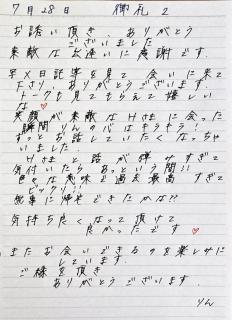 7月28日 御礼 2
お誘い頂き、ありがとう
ございました
素敵な出逢いに感謝です。
写メ日記等を見て 会いに来て
下さり ありがとうございます。
トークも見てもらえて嬉しい
な♡
笑顔が素敵なHさまに会った
瞬間 りんの心はキラキラ!
もっと話していたくなっちゃ
いました。
Hさまと話が弾みすぎて
気付いたら あっという間!!
色々な意味で過去最高 すぎて
ビックリ!!
無事に帰宅できたかな??
気持ち良くなって頂けて
良かったです♡
またお会いできるのを楽しみに
しています。
ご縁を頂き
ありがとうございます。
りん